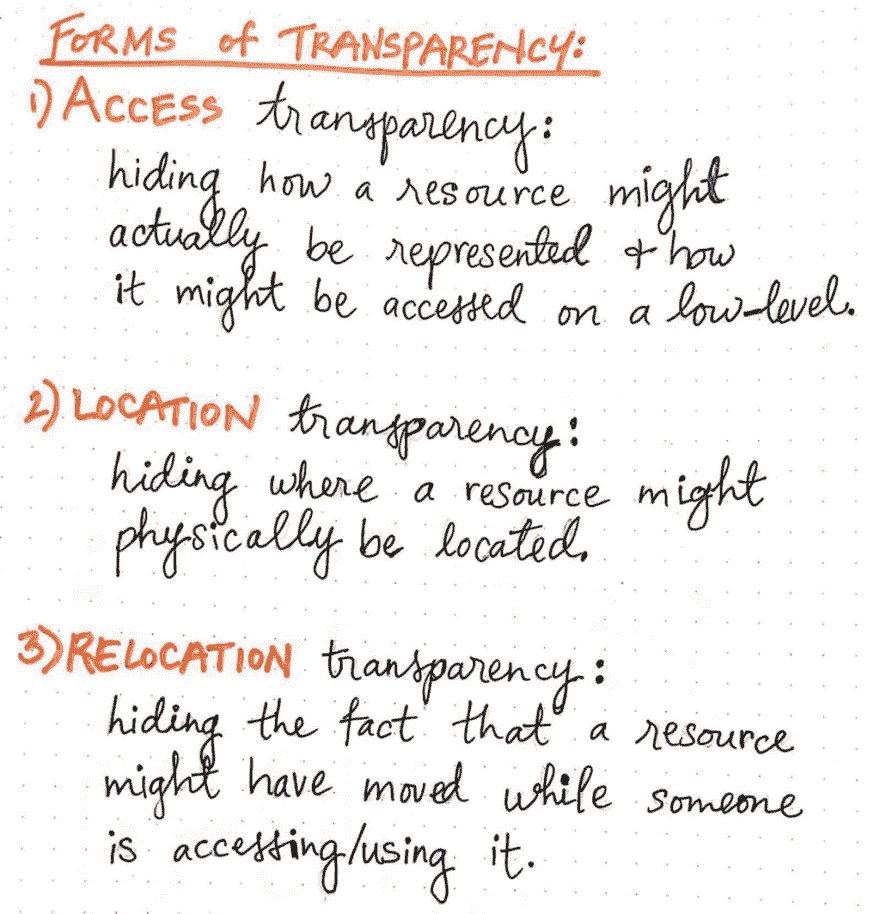 FORMS of TRANSPARENCY:
1) ACCESS transparency:
hiding how a resource might
actually be represented & how
it might be accessed on a low-level.
2) LOCATION transparency:
hiding where a resource might
physically be located.
3) RELOCATION transparency:
hiding the fact that a resource
might have moved while someone
is accessing/using it.